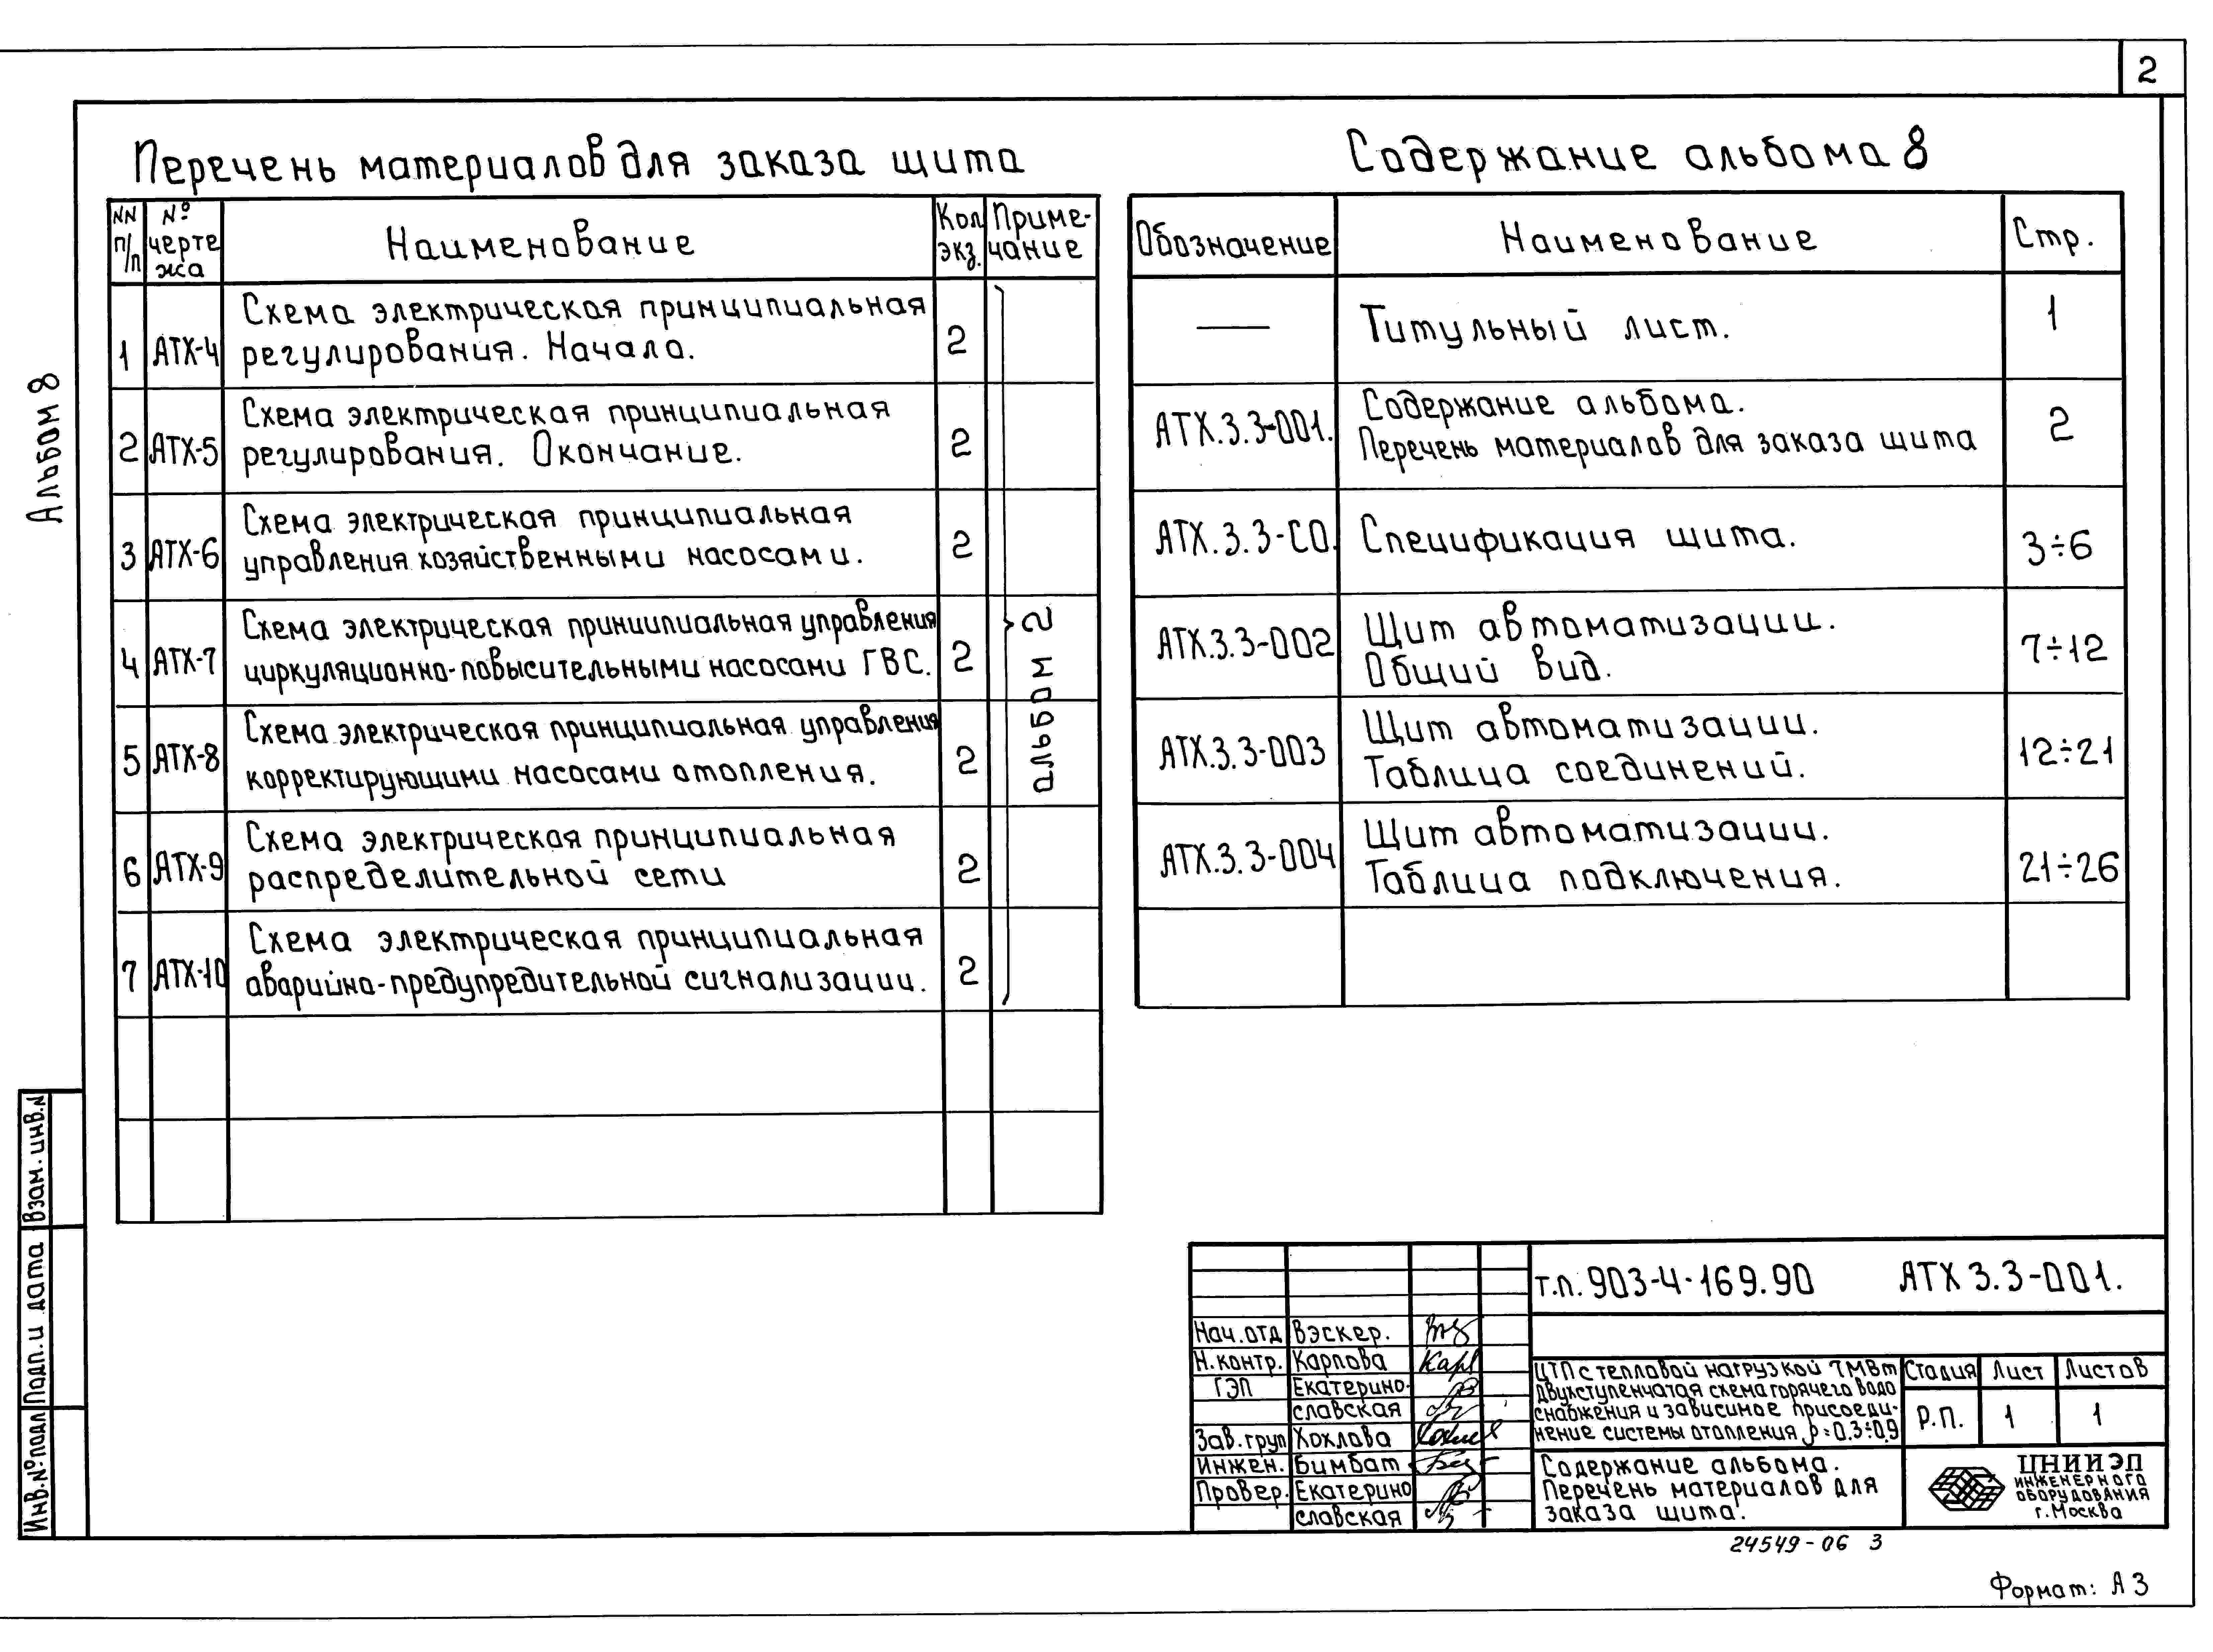 2
Альбом 8
Перечень материалов для заказа щита
NN п/п
№ черте жа
Наименование
Кол экз.
Приме-чание
1 АТХ-4 Схема электрическая принципиальная
регулирования. Начало. 2
2 АТХ-5 Схема электрическая принципиальная
регулирования. Окончание. 2
3 АТХ-6 Схема электрическая принципиальная
управления хозяйственными насосами. 2
4 АТХ-7 Схема электрическая принципиальная управления
циркуляционно-повысительными насосами ГВС. 2
5 АТХ-8 Схема электрическая принципиальная управления
корректирующими насосами отопления. 2
6 АТХ-9 Схема электрическая принципиальная
распределительной сети 2
7 АТХ-10 Схема электрическая принципиальная
аварийно-предупредительной сигнализации. 2
альбом 2
Содержание альбома 8
Обозначение Наименование Стр.
— Титульный лист. 1
АТХ.3.3-001. Содержание альбома.
Перечень материалов для заказа щита 2
АТХ.3.3-СО. Спецификация щита. 3÷6
АТХ.3.3-002 Щит автоматизации.
Общий вид. 7÷12
АТХ.3.3-003 Щит автоматизации.
Таблица соединений. 12÷21
АТХ.3.3-004 Щит автоматизации.
Таблица подключения. 21÷26
Взам. инв. N
Подп. и дата
Инв. № подл
т.п. 903-4-169.90 АТХ 3.3-001.
Нач. отд Вэскер.
Н. контр. Карпова
ГЭП Екатерино-
славская
Зав. груп Хохлова
Инжен. Бимбат
Провер. Екатерино
славская
ЦТП с тепловой нагрузкой 7 МВт
двухступенчатая схема горячего водо
снабжения и зависимое присоеди-
нение системы отопления ρ=0.3÷0.9
Стадия Лист Листов
Р.П. 1 1
Содержание альбома.
Перечень материалов для
заказа щита.
ЦНИИЭП
ИНЖЕНЕРНОГО
ОБОРУДОВАНИЯ
г. Москва
24549-06 3
Формат: А3